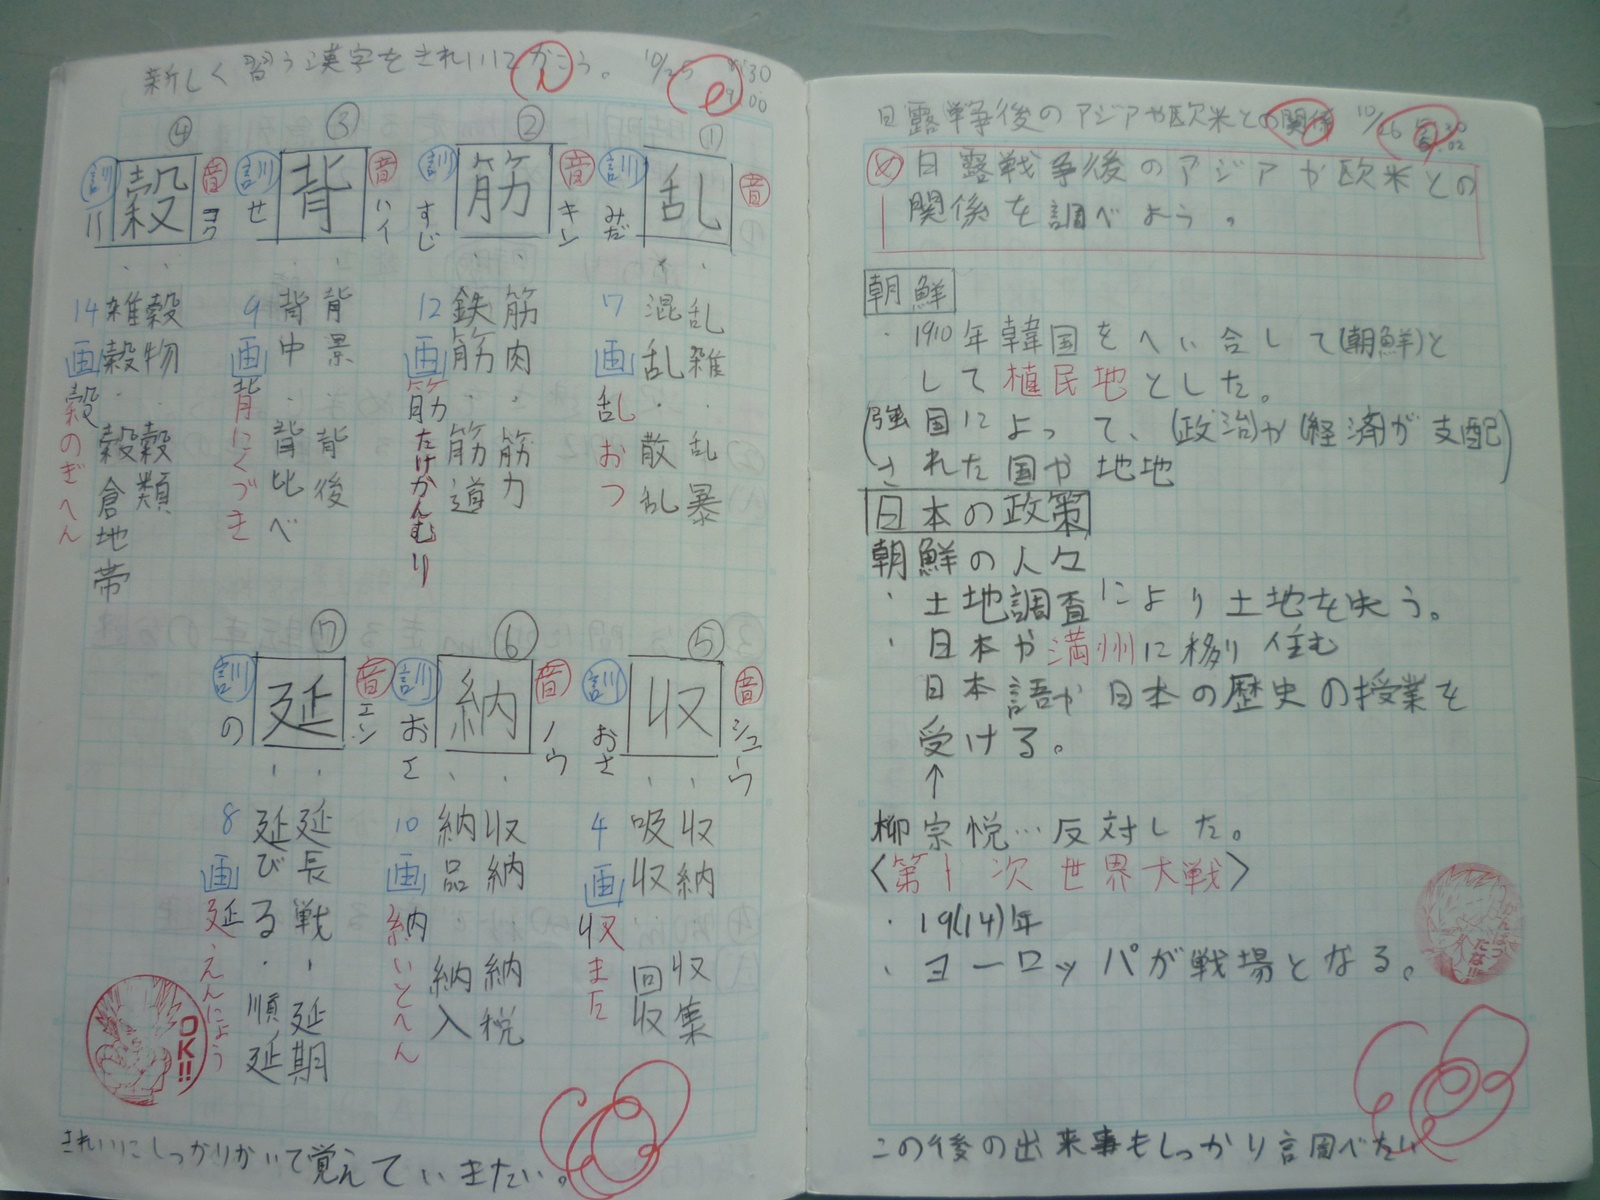 新しく習う漢字をきれいにかこう。 10/25 8:30
9:00
①
音
乱
訓
みだ
乱雑・乱暴
混乱・散乱
7画
乱 おつ
②
音 キン
筋
訓 すじ
筋肉・筋力
鉄筋・筋道
12画
筋 たけかんむり
③
音 ハイ
背
訓 せ
背景・背後
背中・背比べ
9画
背 にくづき
④
音 コク
穀
訓 〃
穀物・穀類
雑穀・穀倉地帯
14画
穀 のぎへん
⑤
音 シュウ
収
訓 おさ
収納 収集
吸収 回収
4画
収 また
⑥
音 ノウ
納
訓 おさ
収納 納税
納品・納入
10画
納 いとへん
⑦
音 エン
延
訓 の
延長戦・延期
延びる・順延
8画
延 えんにょう
OK!!
きれいにしっかりかいて覚えていきたい。
日露戦争後のアジアや欧米との関係 10/26
め 日露戦争後のアジアや欧米との
関係を調べよう。
朝鮮
・1910年韓国をへい合して(朝鮮)と
して植民地とした。
(強国によって、(政治)か(経済)が支配
された国や地地)
日本の政策
朝鮮の人々
・土地調査により土地を失う。
・日本や満州に移り住む
日本語や日本の歴史の授業を
受ける。
↑
柳宗悦…反対した。
〈第1次世界大戦〉
・19(14)年
・ヨーロッパが戦場となる。
この後の出来事もしっかり調べたい